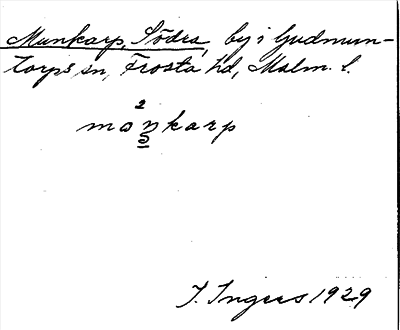 Munkarp, Södra, by i Gudmun-
torps sn, Frosta hd, Malm. l.
2
moŋkarp
I. Ingers 1929